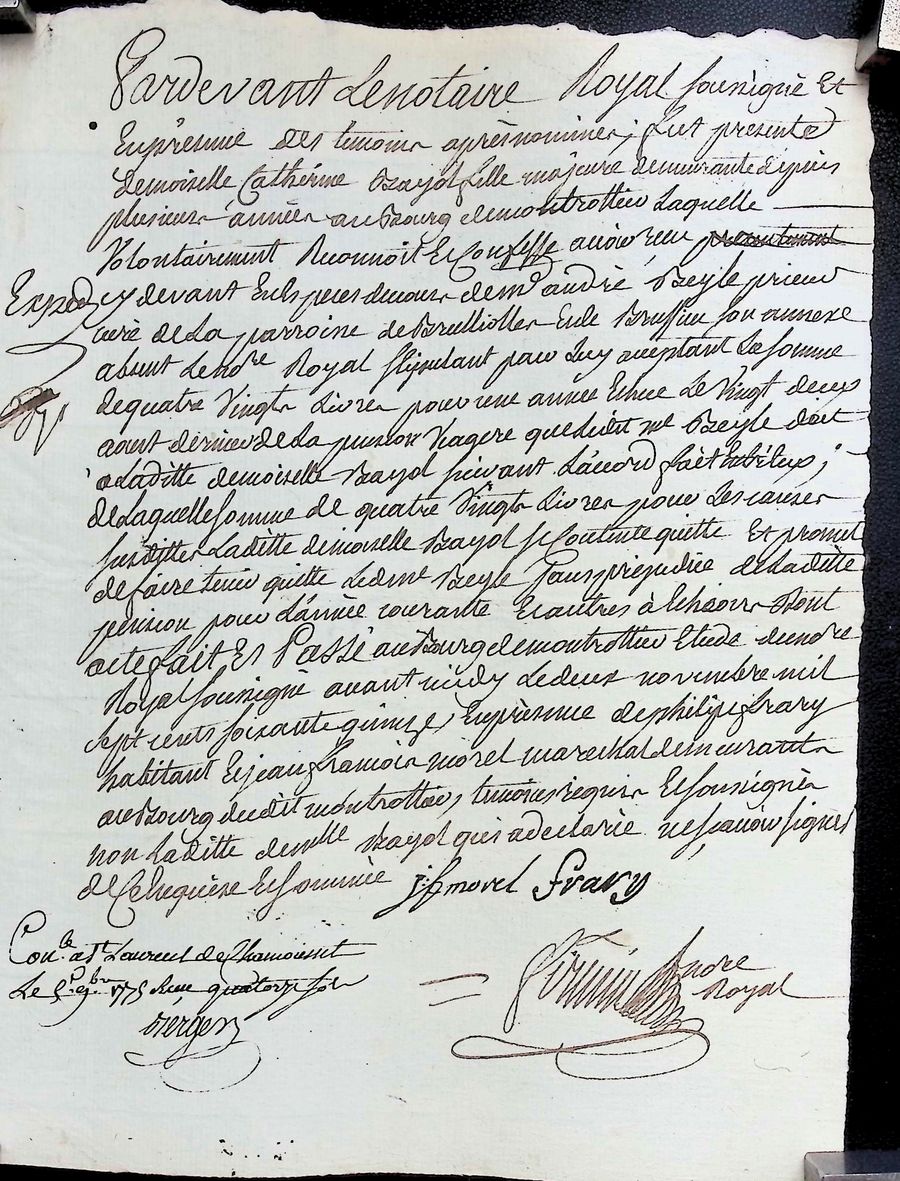 Pardevant Lenotaire Royal soussigné Et
En présence des temoins après nommés, fut presente
demoiselle Catherine Bayol fille majeure demeurante depuis
plusieurs années au Bourg demontrottier Laquelle
Volontairement Reconnoit Et Confesse avoir reçu
Exped cy devant En Especes de cours de Mr andré Beyle prieur
curé de La parroisse de Brulliolles Et de Brussieu son annexe
absent Le nore Royal stipulant pour Luy acceptant La somme
de quatre Vingts Livres pour une année Echue Le Vingt deux
aoust dernier de La pension Viagere que Ledit Mr Beyle doit
a Laditte demoiselle Bayol suivant L'accord fait Entr'eux;
de Laquelle somme de quatre Vingts Livres pour Les causes
susdittes Laditte demoiselle Bayol se Contente quitte Et promet
de faire tenir quitte Led. Mr Beyle Sans prejudice de Laditte
pension pour L'année courante Et autres à Echeoir Dont
acte fait Et Passé au Bourg de montrottier Etude du nore
Royal soussigné avant midy Le deux novembre mil
sept cents soixante quinze, En présence de philipe frary
habitant Et jean francois morel marechal demeurants
au Bourg dudit montrottier, temoins requis Et soussignés
non Laditte demlle Bayol qui a declaré ne scavoir signer
de Ce Enquise Et sommée j: f morel frary
Conlé a St Laurent de Chamousset
Le 5e 9bre 1775 Reçu quatorze sols
Berger
nore
Royal